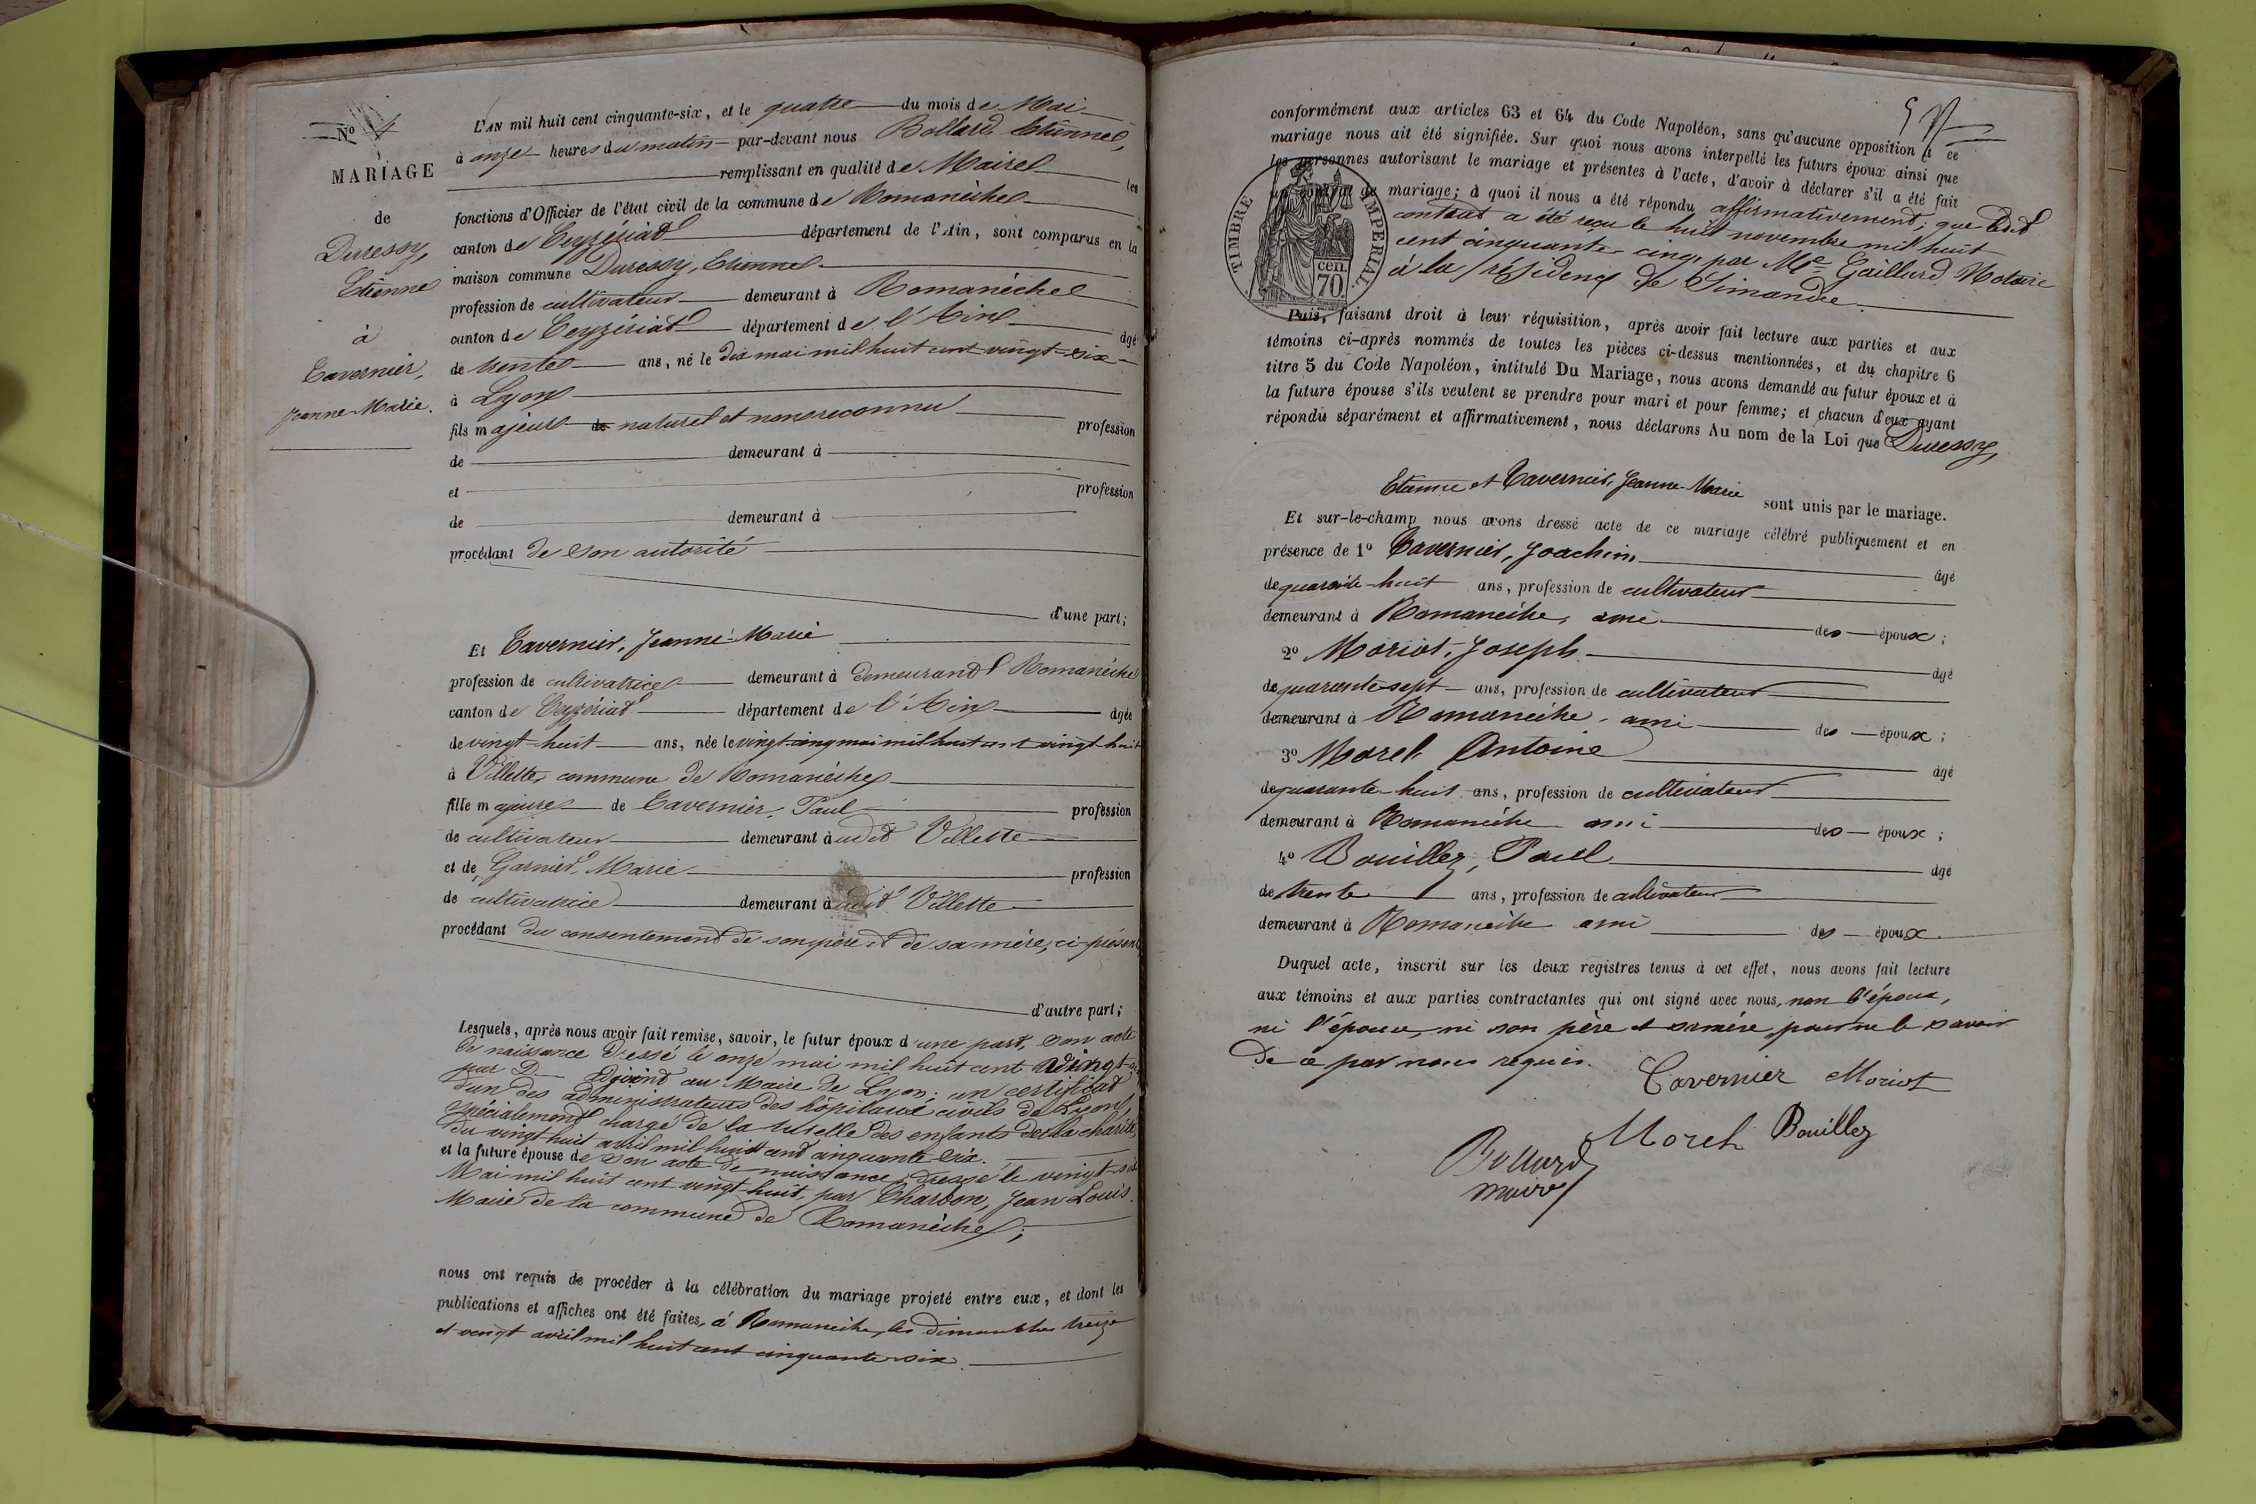 N° 4
MARIAGE
de
Duressy,
Etienne
à
Tavernier,
Jeanne-Marie.
L'AN mil huit cent cinquante-six, et le quatre du mois de Mai
à onze heures du matin par-devant nous Bollard Etienne,
remplissant en qualité de Maire les
fonctions d'Officier de l'état civil de la commune de Romanèche
canton de Ceyzériat département de l'Ain, sont comparus en la
maison commune Duressy, Etienne
profession de cultivateur demeurant à Romanèche
canton de Ceyzériat département de l'Ain âgé
de trente ans, né le dix mai mil huit cent vingt-six
à Lyon
fils majeur de naturel et non reconnu profession
de demeurant à
et profession
de demeurant à
procédant de son autorité
d'une part;
Et Tavernier, Jeanne-Marie
profession de cultivatrice demeurant à demeurant Romanèche
canton de Ceyzériat département de l'Ain âgée
de vingt-huit ans, née le vingt-cinq mai mil huit cent vingt-huit
à Villette, commune de Romanèche
fille majeure de Tavernier, Paul profession
de cultivateur demeurant à udit Villette
et de Garnier Marie profession
de cultivatrice demeurant à udit Villette
procédant du consentement de son père et de sa mère, ci-présents
d'autre part;
Lesquels, après nous avoir fait remise, savoir, le futur époux d'une part, son acte
de naissance dressé le onze mai mil huit cent vingt-six
par D. adjoint au Maire de Lyon; un certificat
d'un des administrateurs des hôpitaux civils de Lyon,
spécialement chargé de la tutelle des enfants de la charité,
du vingt-huit avril mil huit cent cinquante-six.
et la future épouse de son acte de naissance, dressé le vingt-six
Mai mil huit cent vingt-huit, par Charbon, Jean Louis.
Maire de la commune de Romanèche;
nous ont requis de procéder à la célébration du mariage projeté entre eux, et dont les
publications et affiches ont été faites, à Romanèche, les dimanches treize
et vingt avril mil huit cent cinquante-six.
5
conformément aux articles 63 et 64 du Code Napoléon, sans qu'aucune opposition à ce
mariage nous ait été signifiée. Sur quoi nous avons interpellé les futurs époux ainsi que
les personnes autorisant le mariage et présentes à l'acte, d'avoir à déclarer s'il a été fait
un contrat de mariage; à quoi il nous a été répondu affirmativement; que ledit
contrat a été reçu le huit novembre mil huit
cent cinquante-cinq, par Me Gaillard Notaire
à la résidence de Simandre
TIMBRE IMPERIAL.
cen.
70.
Puis, faisant droit à leur réquisition, après avoir fait lecture aux parties et aux
témoins ci-après nommés de toutes les pièces ci-dessus mentionnées, et du chapitre 6
titre 5 du Code Napoléon, intitulé Du Mariage, nous avons demandé au futur époux et à
la future épouse s'ils veulent se prendre pour mari et pour femme; et chacun d'eux ayant
répondu séparément et affirmativement, nous déclarons Au nom de la Loi que Duressy,
Etienne et Tavernier, Jeanne-Marie sont unis par le mariage.
Et sur-le-champ nous avons dressé acte de ce mariage célébré publiquement et en
présence de 1° Tavernier, Joachim, âgé
de quarante-huit ans, profession de cultivateur
demeurant à Romanèche, ami des époux;
2° Moriot, Joseph âgé
de quarante-sept ans, profession de cultivateur
demeurant à Romanèche, ami des époux;
3° Morel Antoine âgé
de quarante-huit ans, profession de cultivateur
demeurant à Romanèche ami des époux;
4° Bouillez, Paul âgé
de trente ans, profession de cultivateur
demeurant à Romanèche ami des époux.
Duquel acte, inscrit sur les deux registres tenus à cet effet, nous avons fait lecture
aux témoins et aux parties contractantes qui ont signé avec nous, non l'époux,
ni l'épouse, ni son père et sa mère pour ne le savoir
de ce par nous requis.
Tavernier Moriot
Morel Bouillez
Bollard
maire